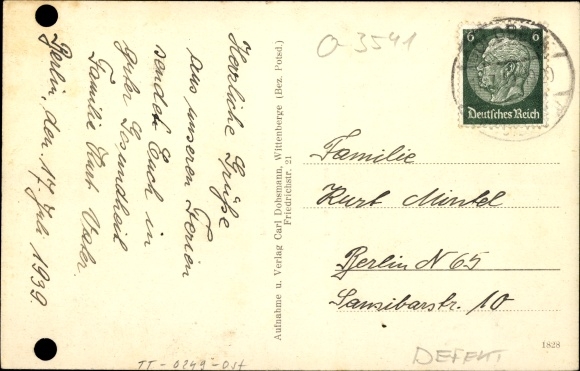 Berlin, den 17. Juli 1939.
Herzliche Grüße
aus unseren Ferien
sendet Euch in
guter Gesundheit
Familie Kurt
Aufnahme u. Verlag Carl Dohsmann, Wittenberge (Bez. Potsd.)
Friedrichstr. 21
O-3541
6 6
Deutsches Reich
Familie
Kurt Mintel
Berlin N 65
Sansibarstr. 10
1828
DEFEKT
TT-0249-Ost